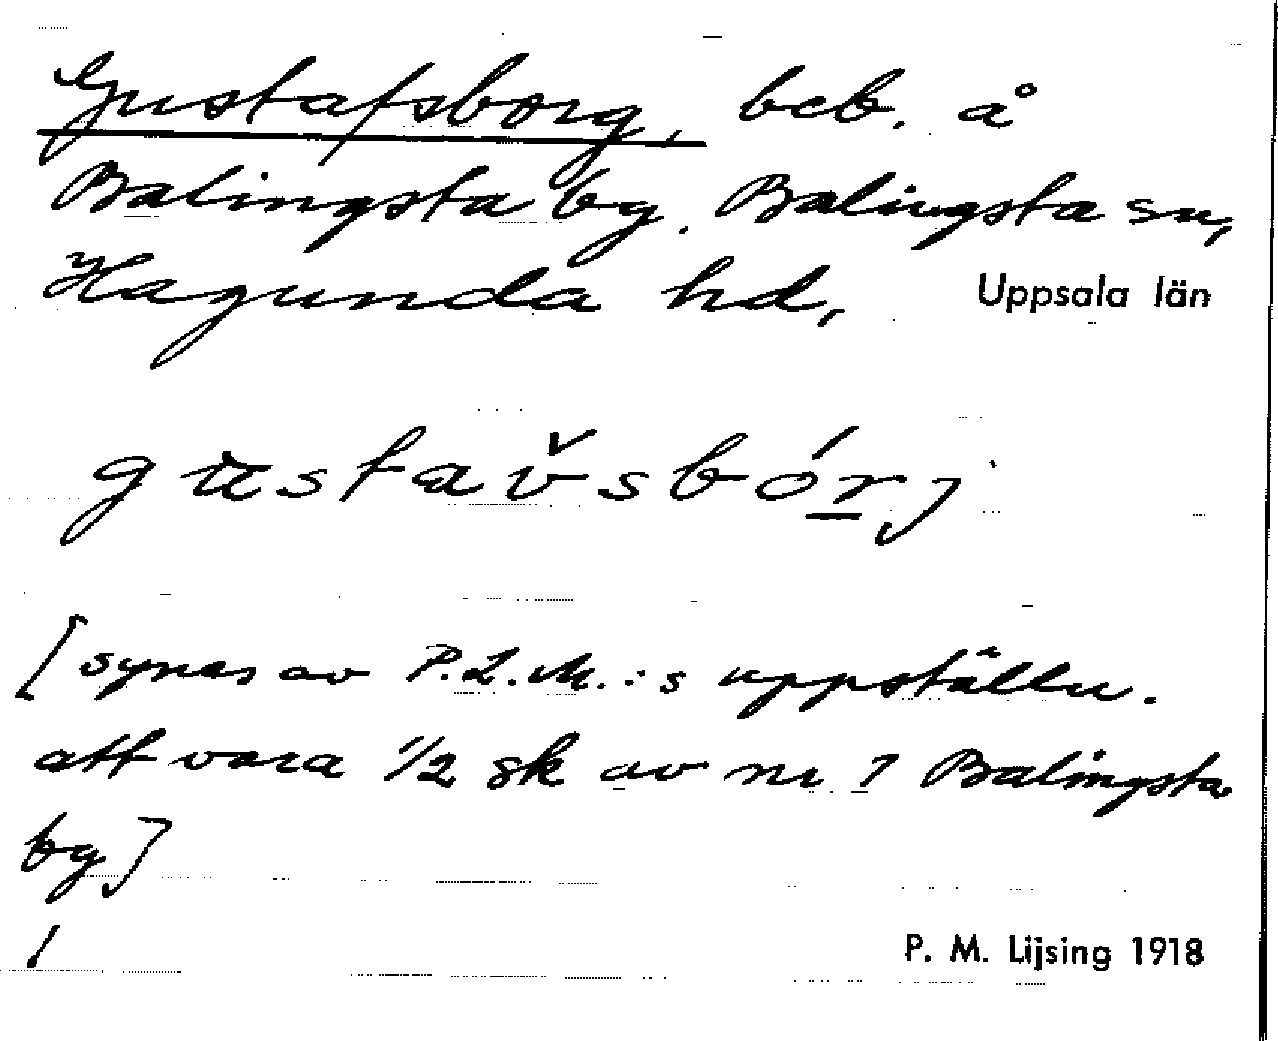 Gustafsborg, beb. å
Balingsta by. Balingsta sn,
Hagunda hd, Uppsala län
gustav̌sbórj
[synes av P.L.M.:s uppställn.
att vara 1/2 sk av nr 7 Balingsta
by]
/
P. M. Lijsing 1918